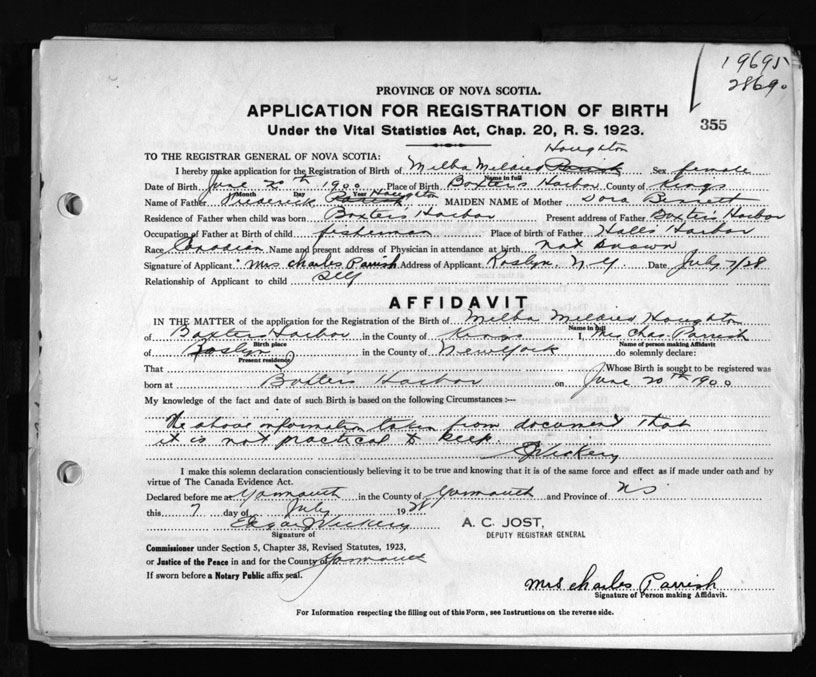 19695
28690
355
PROVINCE OF NOVA SCOTIA.
APPLICATION FOR REGISTRATION OF BIRTH
Under the Vital Statistics Act, Chap. 20, R. S. 1923.
TO THE REGISTRAR GENERAL OF NOVA SCOTIA:
Houghton
I hereby make application for the Registration of Birth of Melba Mildred Parrish Sex female
Name in full
Date of Birth June 20th 1900 Place of Birth Baxters Harbor County of Kings
Month Day Year
Name of Father Frederick Parrish Houghton MAIDEN NAME of Mother Dora Bennett
Residence of Father when child was born Baxters Harbor Present address of Father Baxters Harbor
Occupation of Father at Birth of child fisherman Place of birth of Father Halls Harbor
Race Canadian Name and present address of Physician in attendance at birth not known
Signature of Applicant Mrs Charles Parrish Address of Applicant Roslyn, N.Y. Date July 7/28
Relationship of Applicant to child Self
AFFIDAVIT
IN THE MATTER of the application for the Registration of the Birth of Melba Mildred Houghton
Name in full
of Baxters Harbor in the County of Kings I, Mrs Chas Parrish
Birth place Name of person making Affidavit
of Roslyn in the County of New York do solemnly declare:
Present residence
That Whose Birth is sought to be registered was
born at Baxters Harbor on June 20th 1900
My knowledge of the fact and date of such Birth is based on the following Circumstances :—
The above information taken from document that
it is not practical to keep.
Vickery
I make this solemn declaration conscientiously believing it to be true and knowing that it is of the same force and effect as if made under oath and by
virtue of The Canada Evidence Act.
Declared before me at Yarmouth in the County of Yarmouth and Province of NS
this 7 day of July 1928
Edgar J Vickery
A. C. JOST,
Signature of
DEPUTY REGISTRAR GENERAL
Commissioner under Section 5, Chapter 38, Revised Statutes, 1923,
or Justice of the Peace in and for the County of Yarmouth
If sworn before a Notary Public affix seal.
Mrs Charles Parrish
Signature of Person making Affidavit.
For Information respecting the filling out of this Form, see Instructions on the reverse side.